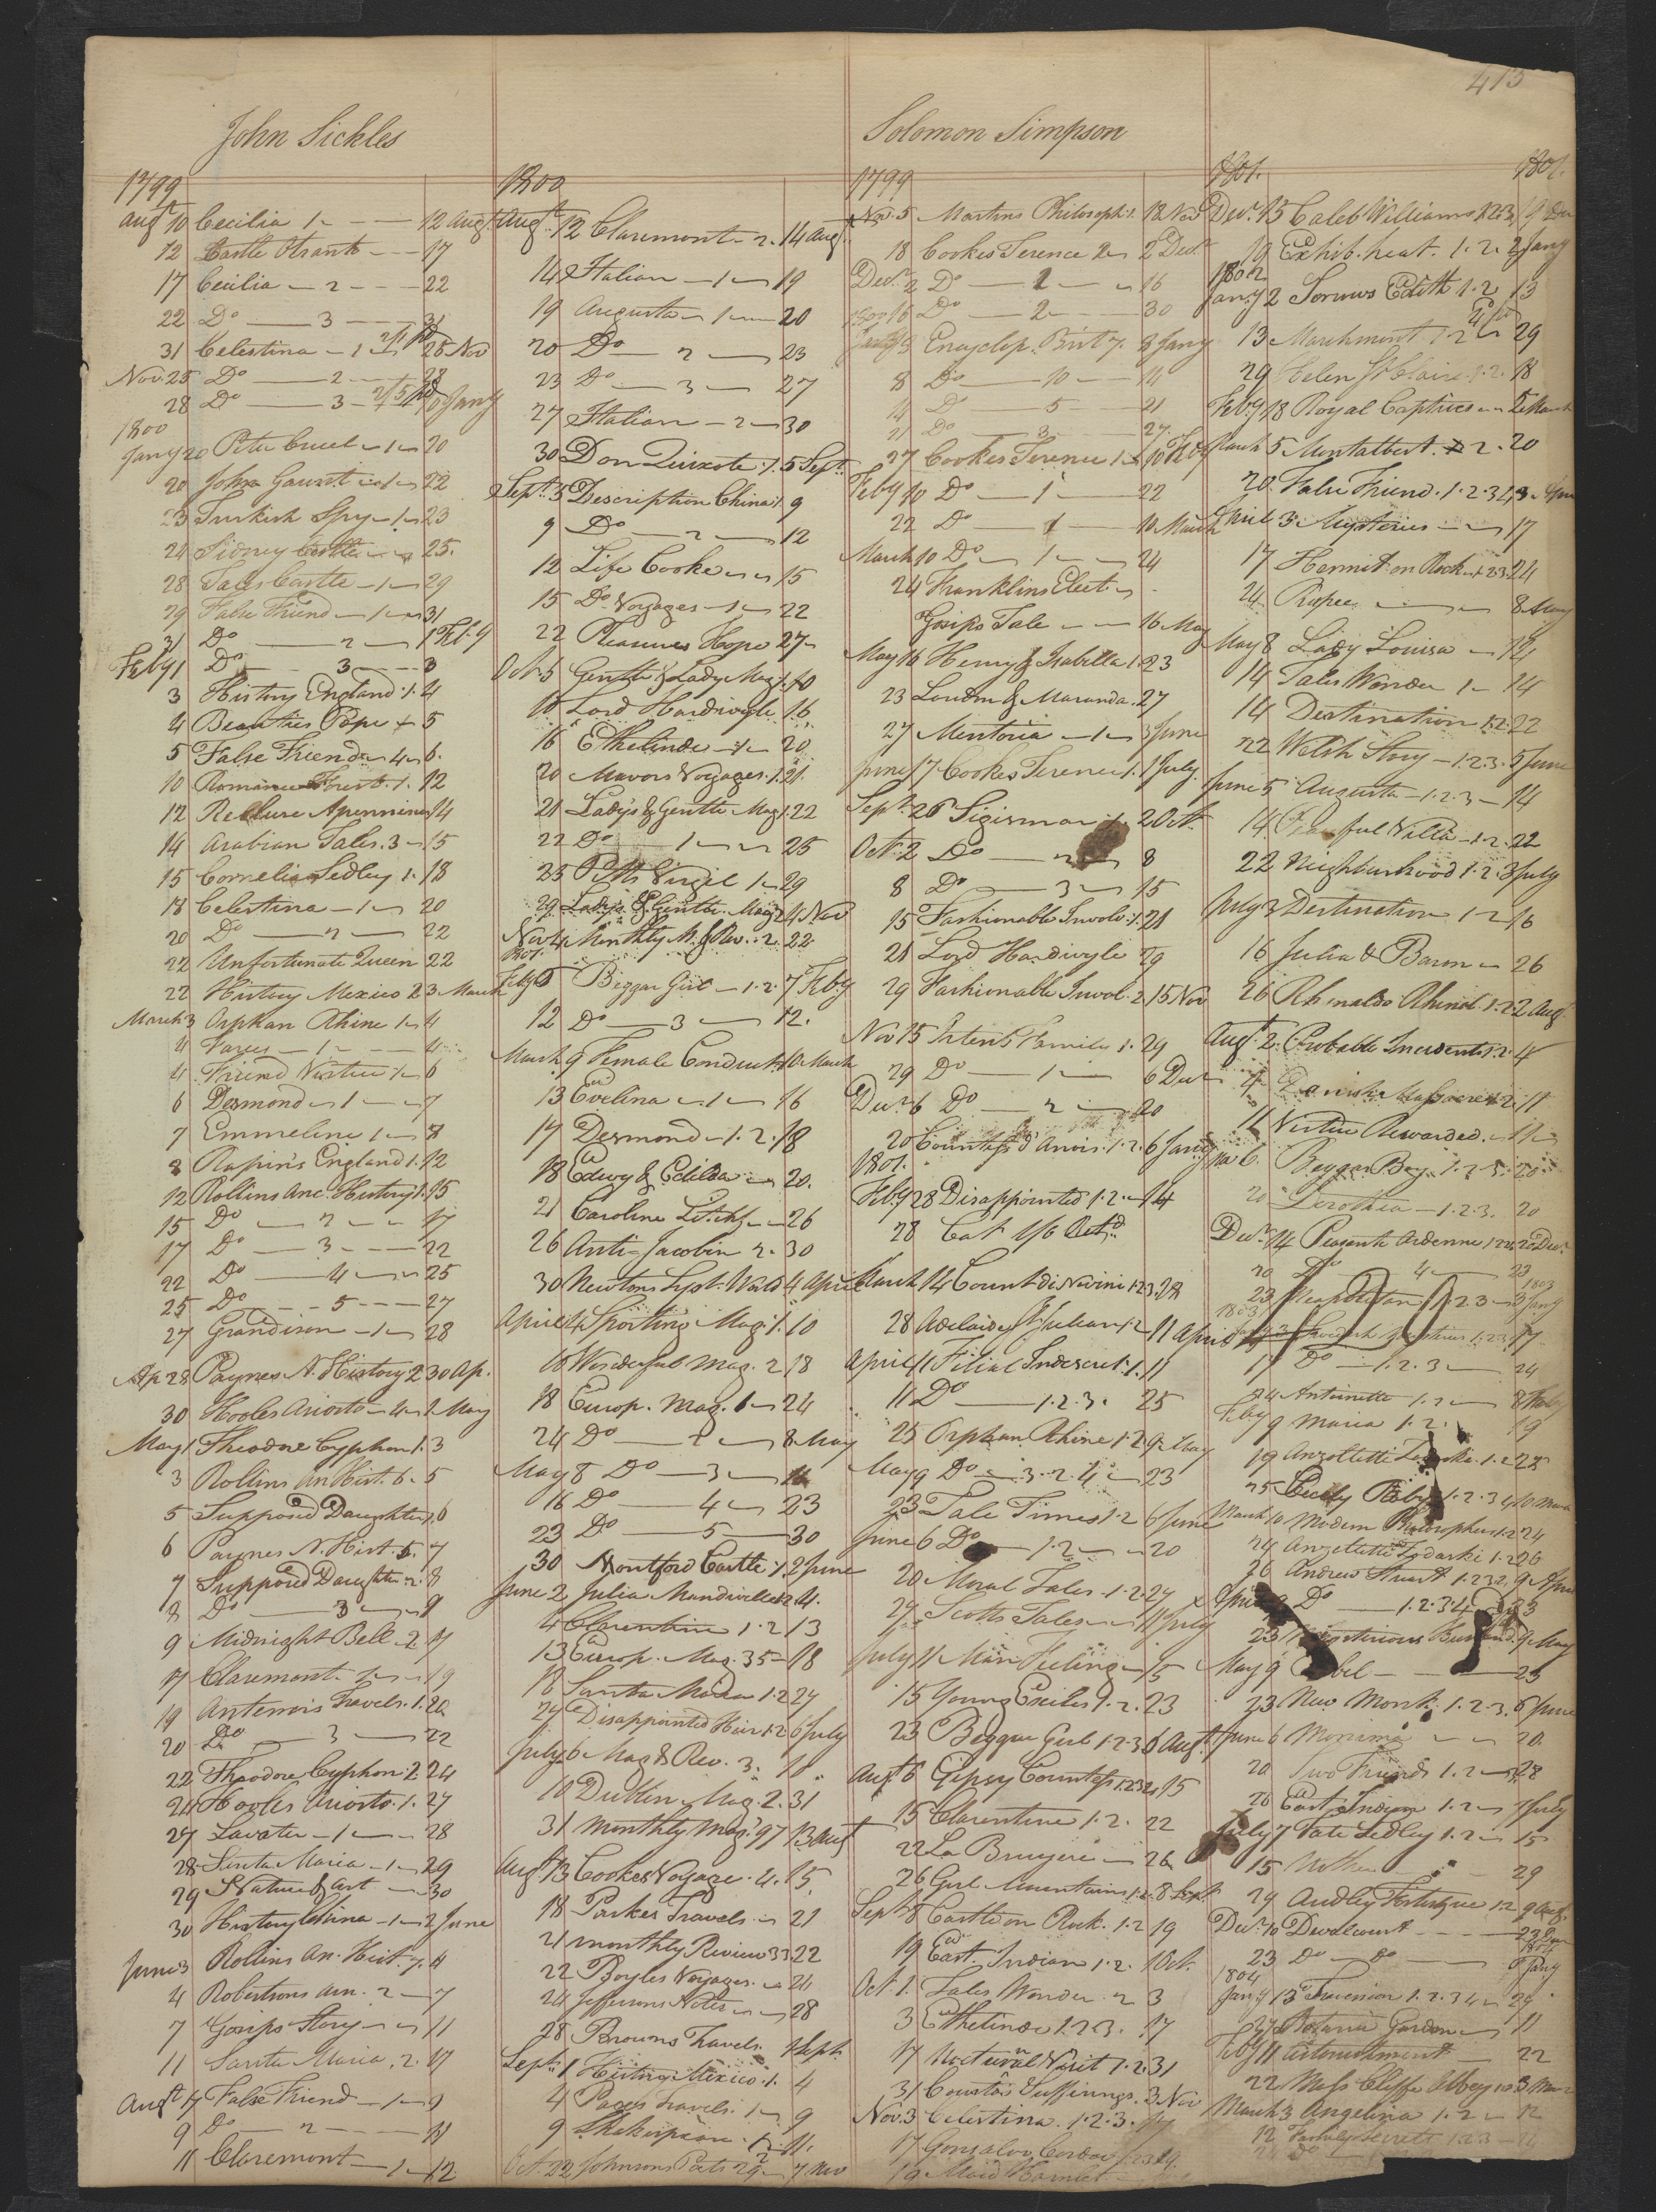 413
John Sickles
1799
Augt 10 Cecilia 1 12 Augt
12 Castle Otranto 17
17 Cecilia 2 22
22 Do 3 31
31 Celestina 1 25 Nov
Nov 25 Do 2 28
28 Do 3 10 Jany
1800
Jany 20 Peter Cruel 1 20
20 John Gaunt 1 22
23 Turkish Spy 1 23
24 Sidney Castle 25.
28 Tales Castle 1 29
29 False Friend 1 31
31 Do 2 1 Feby
Feby 1 Do 3 3
3 History England 1. 4
4 Beauties Pope 5
5 False Friend 4 6.
10 Romance Forest 1. 12
12 Recluse Apennines 14
14 Arabian Tales. 3 15
15 Cornelia Sedley 1. 18
18 Celestina 1 20
20 Do 2 22
22 Unfortunate Queen 22
22 History Mexico 2 3 March
March 3 Orphan Rhine 1 4
4 Varus 1 4
4 Friend Virtue 1 6
6 Desmond 1 7
7 Emmeline 1 8
8 Rapin's England 1. 12
12 Rollins Anc. History 1. 15
15 Do 2 17
17 Do 3 22
22 Do 4 25
25 Do 5 27
27 Grandison 1 28
Ap 28 Paynes N. History 2 30 Ap.
30 Hooles Ariosto 4 1 May
May 1 Theodore Cyphon 1. 3
3 Rollins An Hist. 6. 5
5 Supposed Daughter 1. 6
6 Paynes N. Hist. 5. 7
7 Supposed Daughter 2. 8
8 Do 3 9
9 Midnight Bell 2 17
17 Claremont 19
19 Antenors Travels. 1. 20
20 Do 3 22
22 Theodore Cyphon 2 24
24 Hooles Ariosto. 1. 27
27 Lavater 1 28
28 Santa Maria 1 29
29 Nature & Art 30
30 History China 1 2 June
June 3 Rollins An. Hist. 7. 4
4 Robertsons Am. 2 7
7 Gossips Story 11
11 Santa Maria. 2. 17
Augt 17 False Friend 1 9
9 Do 2 11
11 Claremont 1 12
1800
Augt 12 Claremont 2. 14 Augt
14 Italian 1 19
19 Augusta 1 20
20 Do 2 23
23 Do 3 27
27 Italian 2 30
30 Don Quixote 1. 5 Sept.
Sept. 5 Description China 1 9
9 Do 2 12
12 Life Cooke 15
15 Do Voyages 1 22
22 Pleasures Hope 27
Oct. 5 Gentle & Lady Mag 1. 10
10 Lord Hardivyle 16
16 Ethelinde 1 20
20 Mavors Voyages. 1. 21.
21 Lady's & Gentle Mag 1. 22
22 Do 1 25
25 Pitts Virgil 1 29
29 Lady's & Gentle. Mag 2 4 Nov
Nov 4 Monthly M. & Rev. 2. 22.
1801.
Feby 5 Beggar Girl 1. 2. 7 Feby
12 Do 3 12.
March 9 Female Conduct 10 March
13 Evelina 1 16
17 Desmond 1. 2. 18
18 Edwy & Edilda 20.
21 Caroline Litchf 26
26 Anti-Jacobin 2. 30
30 Newtons Syst. World 4 April
April 4 Sporting Mag. 1. 10
10 Wonderful Mag. 2 18
18 Europ. Mag. 1 24
24 Do 2 8 May
May 8 Do 3 16
16 Do 4 23
23 Do 5 30
30 Montford Castle 1. 2 June
June 2 Julia Mandiville 1. 2 4.
4 Clarentine 1. 2 13
13 Europ. Mag. 35 18
18 Santa Maria 1. 2 24
24 Disappointed Heir 1. 2 6 July
July 6 Mag & Rev. 3. 10
10 Dublin Mag. 2. 31
31 Monthly Mag. 97 13 Augt
Augt 13 Cookes Voyage. 4. 15
18 Parkes Travels 21
21 Monthly Review 33 22
22 Boyles Voyages. 24
24 Jeffersons Notes 28
28 Browns Travels. 1 Sept.
Sept. 1 History Mexico. 1. 4
4 Pages Travels. 1 9
9 Shakespeare. 11.
Oct. 22 Johnsons Poets 29 7 Nov
Solomon Simpson
1799
Nov. 5 Martins Philosoph 1. 18 Nov
18 Cookes Terence 2 2 Decr
Decr 2 Do 1 16
16 Do 2 30
1800
Jany 3 Encyclop. Brit 7. 8 Jany
8 Do 10 14
14 Do 5 21
21 Do 3 27
27 Cookes Terence 1 10 Feby
Feby 10 Do 1 22
22 Do 1 10 March
March 10 Do 1 24
24 Franklins Elect
Gossips Tale 16 May
May 16 Henry & Isabella 1. 23
23 Loudon & Maranda. 27
27 Mentoria 1 3 June
June 17 Cookes Terence 1. 1 July
Sept. 26 Sigismar 1. 2 Oct.
Oct. 2 Do 2 8
8 Do 3 15
15 Fashionable Involv. 1. 21
21 Lord Hardivyle 29
29 Fashionable Invol. 2 15 Nov
Nov 15 Irten's Family 1. 29
29 Do 1 6 Decr
Decr 6 Do 2 20
20 Countess d Anois. 1. 2. 6 Jany
1801.
Feby 28 Disappointed 1. 2. 14
28 Cat 1/6 Octd
March 14 Count di Novini 1. 2 3. 28
28 Adelaide St Julian 1. 2 11 April
April 11 Filial Indiscret. 1. 11
11 Do 1. 2. 3. 25
25 Orphan Rhine 1. 2. 9 May
May 9 Do 3. 2. 4 23
23 Tale Times 1. 2 6 June
June 6 Do 1. 2 20
20 Moral Tales. 1. 2. 27
27 Scotts Tales 11 July
July 11 Man Feeling 15
15 Young Exiles 1. 2. 23
23 Beggar Girl 1. 2. 3 6 Augt
Augt 6 Gipsy Countess 1. 2 3 4 15
15 Clarentine 1. 2. 22
22 La Bruyere 26
26 Girl Mountains 1. 2. 8 Sept
Sept. 8 Castle on Rock. 1. 2 19
19 East. Indian 1. 2. 1 Oct.
Oct. 1. Tales Wonder. 2 3
3 Ethelinde 1. 2 3. 17
17 Nocturnal Visit 1. 2. 31
31 Countess Sufferings. 3 Nov
Nov. 3 Celestina. 1. 2. 3. 17
17 Gonsalvo Cordova 19.
19 Maid Hamlet
1801. 1801.
Decr 15 Caleb Williams 1. 2 3 19 Dec
19 Exhib. heat. 1. 2. 2 Jany
1802
Jany 2 Sorrows Edith 1. 2 13
13 Marchmont 1. 2 29
29 Helen St Claire. 1. 2. 18
Feby 18 Royal Captives 5 March
March 5 Montalbert. 2. 20
20 False Friend. 1. 2. 3 4 3 April
April 3 Mysteries 17
17 Hermit on Rock 1. 2 3 24
24 Rupee 8 May
May 8 Lady Louisa 14
14 Tales Wonder 1 14
14 Destination 1. 2. 22
22 Welch Story 1. 2. 3. 5 June
June 5 Augusta 1. 2. 3 14
14 Peaceful Villa 1. 2. 22
22 Neighbourhood 1. 2. 3 July
July 3 Destination 1. 2 16
16 Julia & Baron 26
26 Rhinaldo Rhinal. 1. 2 2 Aug.
Augt 2. Probable Incidents 1. 2. 4
4 Danish Massacre 1. 2. 11
11 Virtue Rewarded.
Beggar Boy. 1. 2. 3. 20
20 Dorothea 1. 2. 3. 20
Decr 14 Peasant Ardenne 1. 2 3 20 Decr
20 Do 4 23
1803
23 Neapolitan 1. 2. 3 3 Jany
17 Do 1. 2. 3 24
24 Antoinette 1. 2 9 Feby
Feby 9 Maria 1. 2. 19
19 Anzoletti Zodaski. 1. 2 25
25 Cicely Raby 1. 2. 3 4 10 March
March 10 Modern Philosopher 1. 2 24
24 Anzoletti Zodarski 1. 2 26
26 Andrew Stuart 1. 2 3 4. 9 April
April 9 Do 1. 2. 3 4 23
23 Mysterious Husband. 9 May
May 9 23
23 New Monk. 1. 2. 3. 6 June
June 6 Monima 20.
20 Two Friends 1. 2 28
28 East Indian 1. 2 7 July
July 7 Fate Sedley 1. 2 15
15 Mother 29
29 Audley Fortescue 1. 2 9 Aug.
Decr 10 Devalcourt 23 Decr
1804
23 Do Do 6 Jany
1804
Jany 13 Invension 1. 2. 3 4 27
27 Botanic Garden 11
Feby 11 Astonishment 22
22 Miss Cliffe Abbey 3 Mar
March 3 Angelina 1. 2 12
12 Family Secrets 1. 2 3
Do